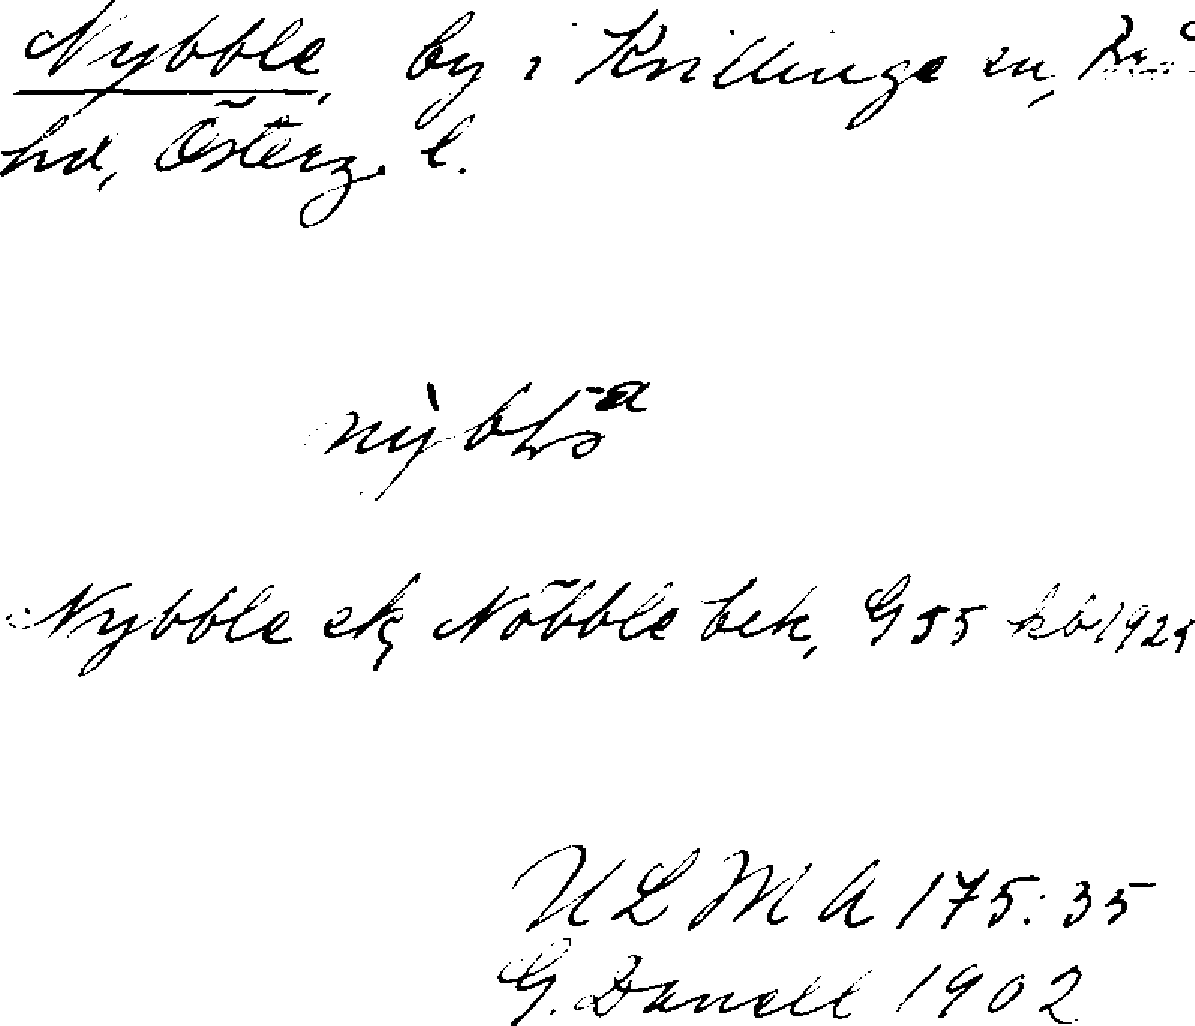 Nybble, by i Kvillinge sn,
hd, Österg. l.
Nybble ek, Nöbble bek, G 55 kb 1925
ULMA 175:35
G. Danell 1902